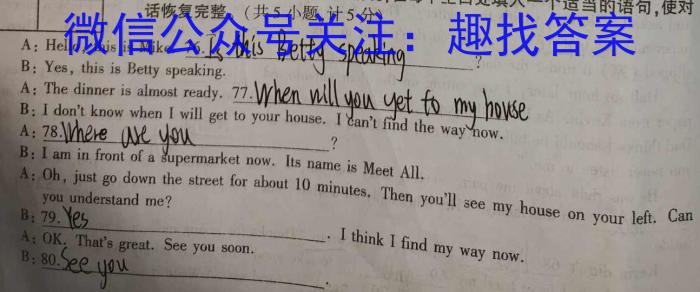 一个适当的语句,使对
话恢复完整。(共5小题,计5分)
微信公众号关注:趣找答案
A: Hello, this is Mike. 76. Is this Betty speaking ?
B: Yes, this is Betty speaking.
A: The dinner is almost ready. 77. When will you get to my house
B: I don't know when I will get to your house. I can't find the way now.
A: 78. Where are you ?
B: I am in front of a supermarket now. Its name is Meet All.
A: Oh, just go down the street for about 10 minutes. Then you'll see my house on your left. Can
you understand me?
B: 79. Yes . I think I find my way now.
A: OK. That's great. See you soon.
B: 80. See you .